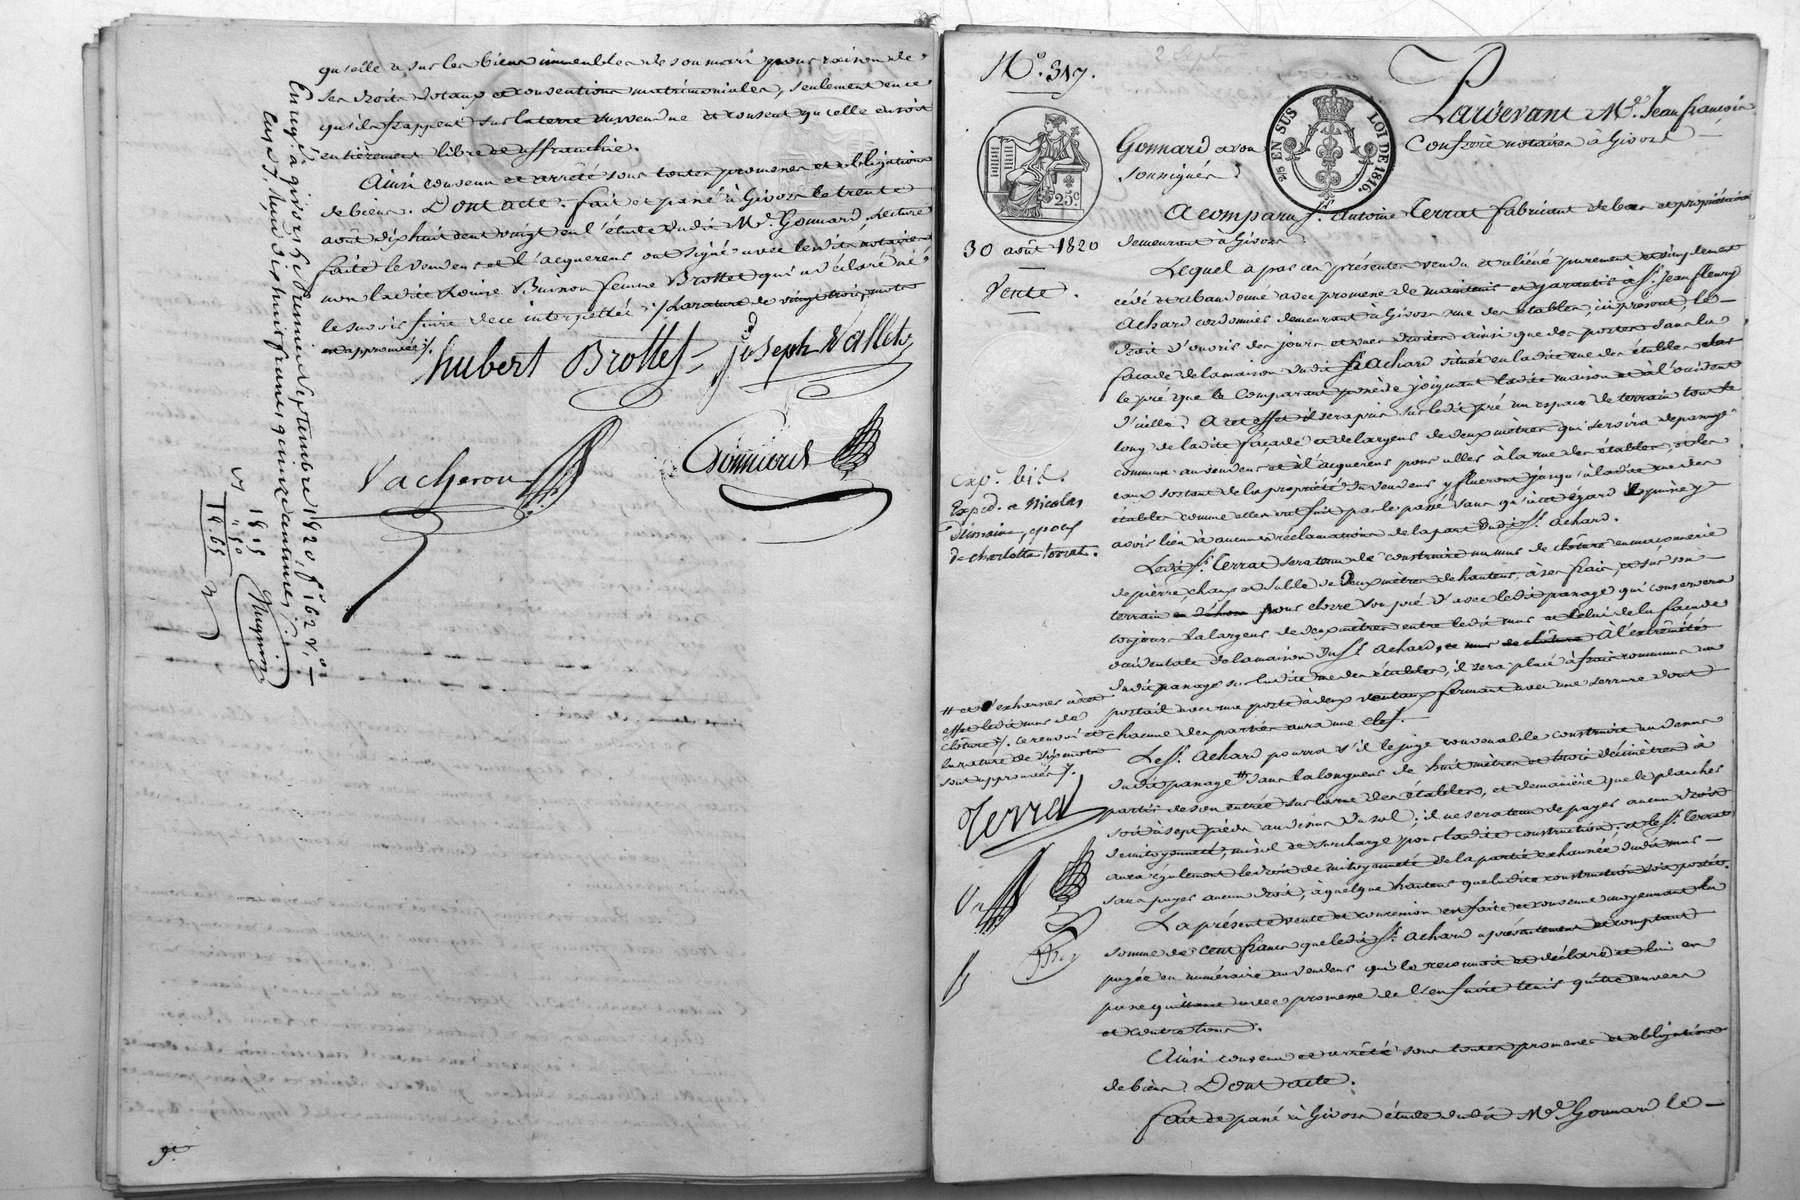 qu'elle a sur les biens immeubles de son mari pour raison de
ses droits dotaux et conventions matrimoniales, seulement en ce
qu'ils frappent sur la terre sus vendue et consent qu'elle en soit
entièrement libre et affranchie.
Ainsi convenu et arrêté sous toutes promesses et obligations
de biens. Dont acte. fait et passé à Givors le trente
août dix huit cent vingt en l'étude dudit Me. Gonnard, Lecture
faite le vendeur et l'acquéreur ont signé avec lesdits notaires
non ladite Louise Buisson femme Brottet qui a déclaré ne
le savoir faire de ce interpellée ;/. La rature de vingt trois mots
est approuvée ;/.
hubert Brottet joseph Vallet
Vacheron
Gonnard
Enreg. à givors le premier Septembre 1820, fo. 162 vo.
dix huit francs quinze centimes
1820
18.15
18.65
No. 317.
25c
25 EN SUS
LOI DE 1816.
30 août 1820
Vente.
Pardevant Me. Jean françois
Gonnard et son Confrère notaires à Givors
soussignés.
A comparu sr. Antoine Terrat fabricant de bas et propriétaire
demeurant à Givors
Lequel a par ces présentes vendu et aliéné purement et simplement
cédé et rebandonné avec promesse de maintenir et garantir à sr. Jean fleury
Achard cordonnier demeurant à Givors rue des étables, ici présent, le
droit d'ouvrir des jours et vues droites ainsi que des portes dans la
façade de la maison dudit sr. Achard située en ladite rue des étables
le pré que le Comparant possède joignant ladite maison et à l'occident
d'icelle. A cet effet il sera pris sur ledit pré un espace de terrain tout le
long de ladite façade et de largeur de deux mètres qui servira de passage
commun au vendeur et à l'acquéreur pour aller à la rue des étables, et les
eaux sortant de la propriété du vendeur y flueront jusqu'à ladite rue des
étables comme elles ont fait par le passé sans qu'à cet égard il puisse y
avoir lieu à aucunes réclamations de la part dudit sr. Achard.
Ledit sr. Terrat sera tenu de construire un mur de clôture en maçonnerie
de pierre, chaux et sable de deux mètres de hauteur, à ses frais, et sur son
terrain pour clorre son pré d'avec ledit passage qui conservera
toujours la largeur de deux mètres entre ledit mur et celui de la façade
occidentale de la maison du sr. Achard, à l'extrêmité
dudit passage sur ladite rue des étables, il sera placé à frais communs un
portail avec une porte à deux ventaux fermant avec une serrure dont
chacune des parties aura une clef.
Le sr. Achard pourra s'il le juge convenable construire au dessus
dudit passage # dans la longueur de huit mètres et trois décimètres à
partir de son entrée sur la rue des étables, et de manière que le plancher
soit à sept pieds au dessus du sol; il ne sera tenu de payer aucun droit
de mitoyenneté, ni sol de surcharge pour ladite construction, et le sr. Terrat
aura également le droit de mitoyenneté de la partie exhaussée dudit mur
sans payer aucun droit, à quelque hauteur que ladite construction soit portée.
La présente vente et concession est faite et convenue moyennant la
somme de cent francs que ledit sr. Achard a présentement et comptant
payée en numéraire au vendeur qui le reconnait et déclare et lui en
passe quittance avec promesse de l'en faire tenir quitte envers
et contre tous.
Ainsi convenu et arrêté sous toutes promesses et obligations
de biens. Dont acte.
fait et passé à Givors étude dudit Me. Gonnard le
exp.
Exped. à Nicolas
époux
de charlotte terrat.
# et d'exhausser à cet
effet ledit mur de
clôture ;/. ce renvoi et
la rature de six mots
sont approuvés ;/.
Terrat